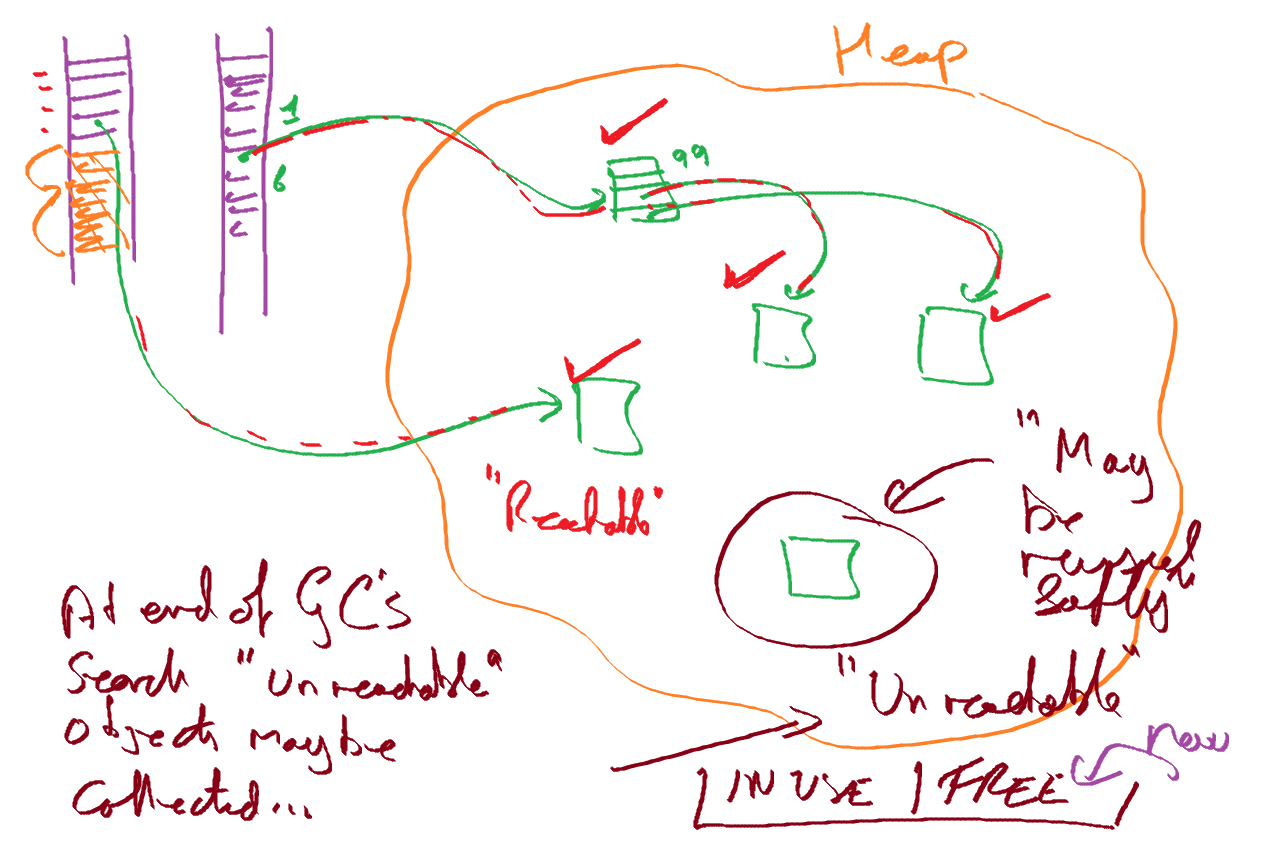 Heap
1
6
99
"Reachable"
"May
be
reused
safely"
"Unreachable"
At end of GC's
Search "Unreachable"
objects maybe
Collected...
new
IN USE | FREE